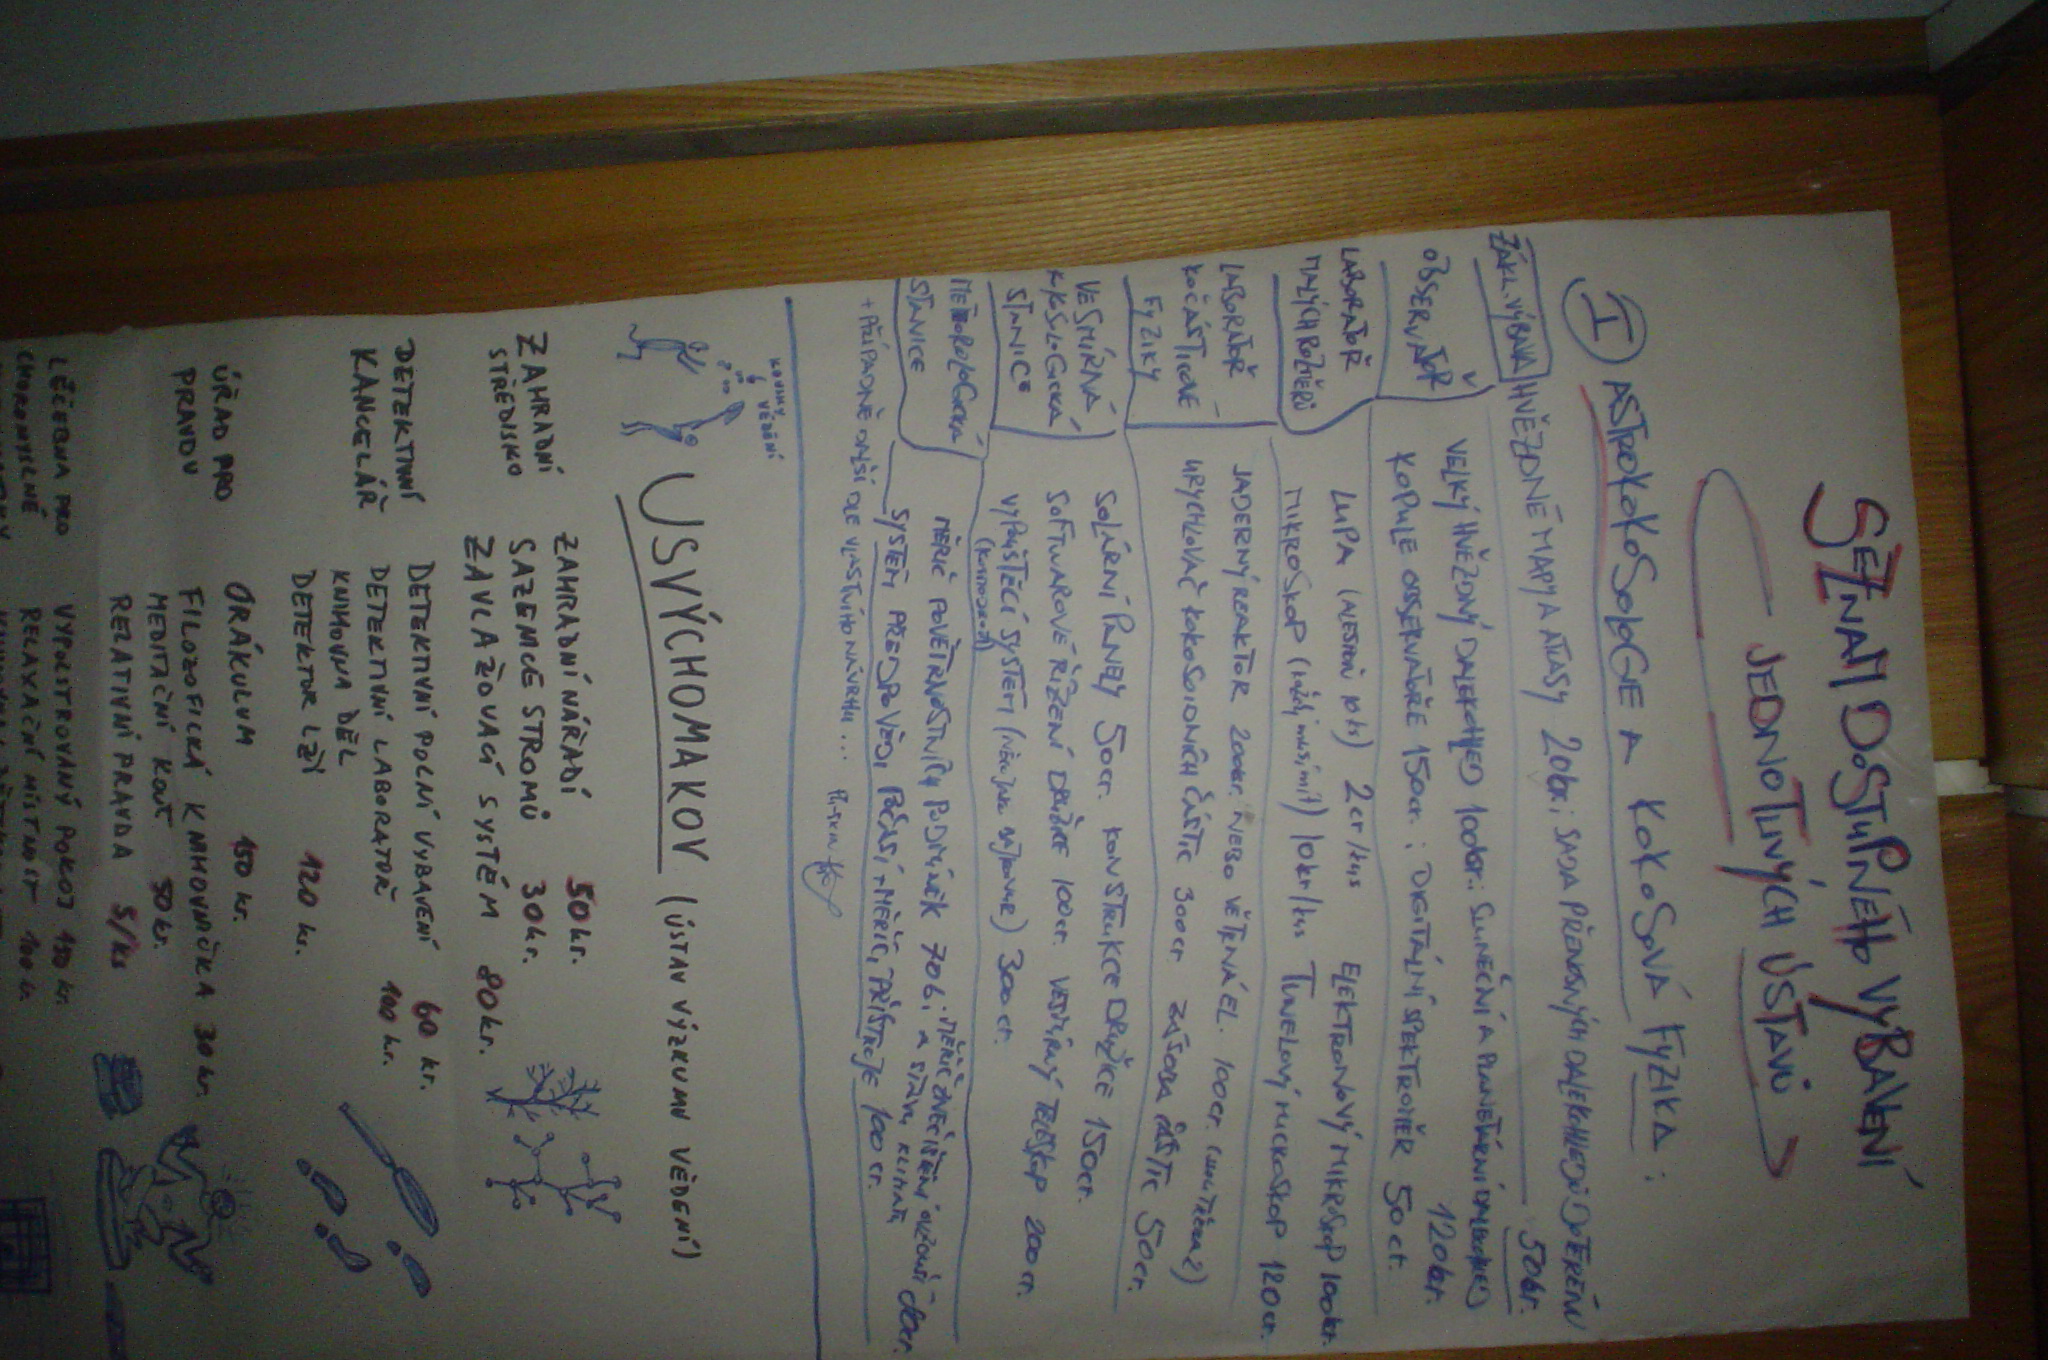 SEZNAM DOSTUPNÉHO VYBAVENÍ
JEDNOTLIVÝCH ÚSTAVŮ
I ASTROKOKOSOLOGIE A KOKOSOVÁ FYZIKA:
ZÁKL. VÝBAVA HVĚZDNÉ MAPY A ATLASY 20kr.; SADA PŘENOSNÝCH DALEKOHLEDŮ DO TERÉNU 50kr.
OBSERVATOŘ VELKÝ HVĚZDNÝ DALEKOHLED 100kr.; SLUNEČNÍ A PLANETÁRNÍ DALEKOHLED 120kr.
KOPULE OBSERVATOŘE 150cr.; DIGITÁLNÍ SPEKTROMĚR 50cr.
LABORATOŘ MALÝCH ROZMĚRŮ LUPA 2cr/kus ELEKTRONOVÝ MIKROSKOP 100kr.
MIKROSKOP 10kr/kus TUNELOVÝ MICKOSKOP 120cr.
LABORATOŘ KOČÁSTICOVÉ FYZIKY JADERNÝ REAKTOR 200kr. NEBO VĚTRNÁ EL. 100cr.
URYCHLOVAČ KOKOSIONICH ČÁSTIC 300cr. ZÁSOBA ČÁSTIC 50cr.
VESMÍRNÁ KOKOSOLOGICKÁ STANICE SOLÁRNÍ PANELY 50cr. KONSTRUKCE DRUŽICE 150cr.
SOFTWAROVÉ ŘÍZENÍ DRUŽICE 100cr. VESMÍRNÝ TELESKOP 200cr.
VYPOUŠTĚCÍ SYSTÉM 300cr.
METOROLOGICKÁ STANICE MĚŘIČ POVĚTRNOSTNÍCH PODMÍNEK 70
SYSTÉM PŘEDPOVĚDI POČASÍ + MĚŘÍCÍ PŘÍSTROJE 100cr.
+ PŘÍPADNĚ DALŠÍ DLE VLASTNÍHO NÁVRHU...
HOVINY VĚDĚNÍ
USVÝCHOMAKOV (ÚSTAV VÝZKUMU VĚDĚNÍ)
ZAHRADNÍ STŘEDISKO ZAHRADNÍ NÁŘADÍ 50kr.
SAZENICE STROMŮ 30kr.
ZAVLAŽOVACÍ SYSTÉM 80kr.
DETEKTIVNÍ KANCELÁŘ DETEKTIVNÍ POLNÍ VYBAVENÍ 60 kr.
DETEKTIVNÍ LABORATOŘ 100 kr.
KNIHOVNA DĚL
DETEKTOR LŽÍ 120 kr.
ÚŘAD PRO PRAVDU ORÁKULUM 150 kr.
FILOZOFICKÁ KNIHOVNIČKA 30 kr.
MEDITAČNÍ KOUT 50 kr.
RELATIVNÍ PRAVDA 5/ks
LÉČEBNA PRO CHOROMYSLNÉ VYPOLSTROVANÝ POKOJ 150 kr.
RELAXAČNÍ MÍSTNOST 100 kr.